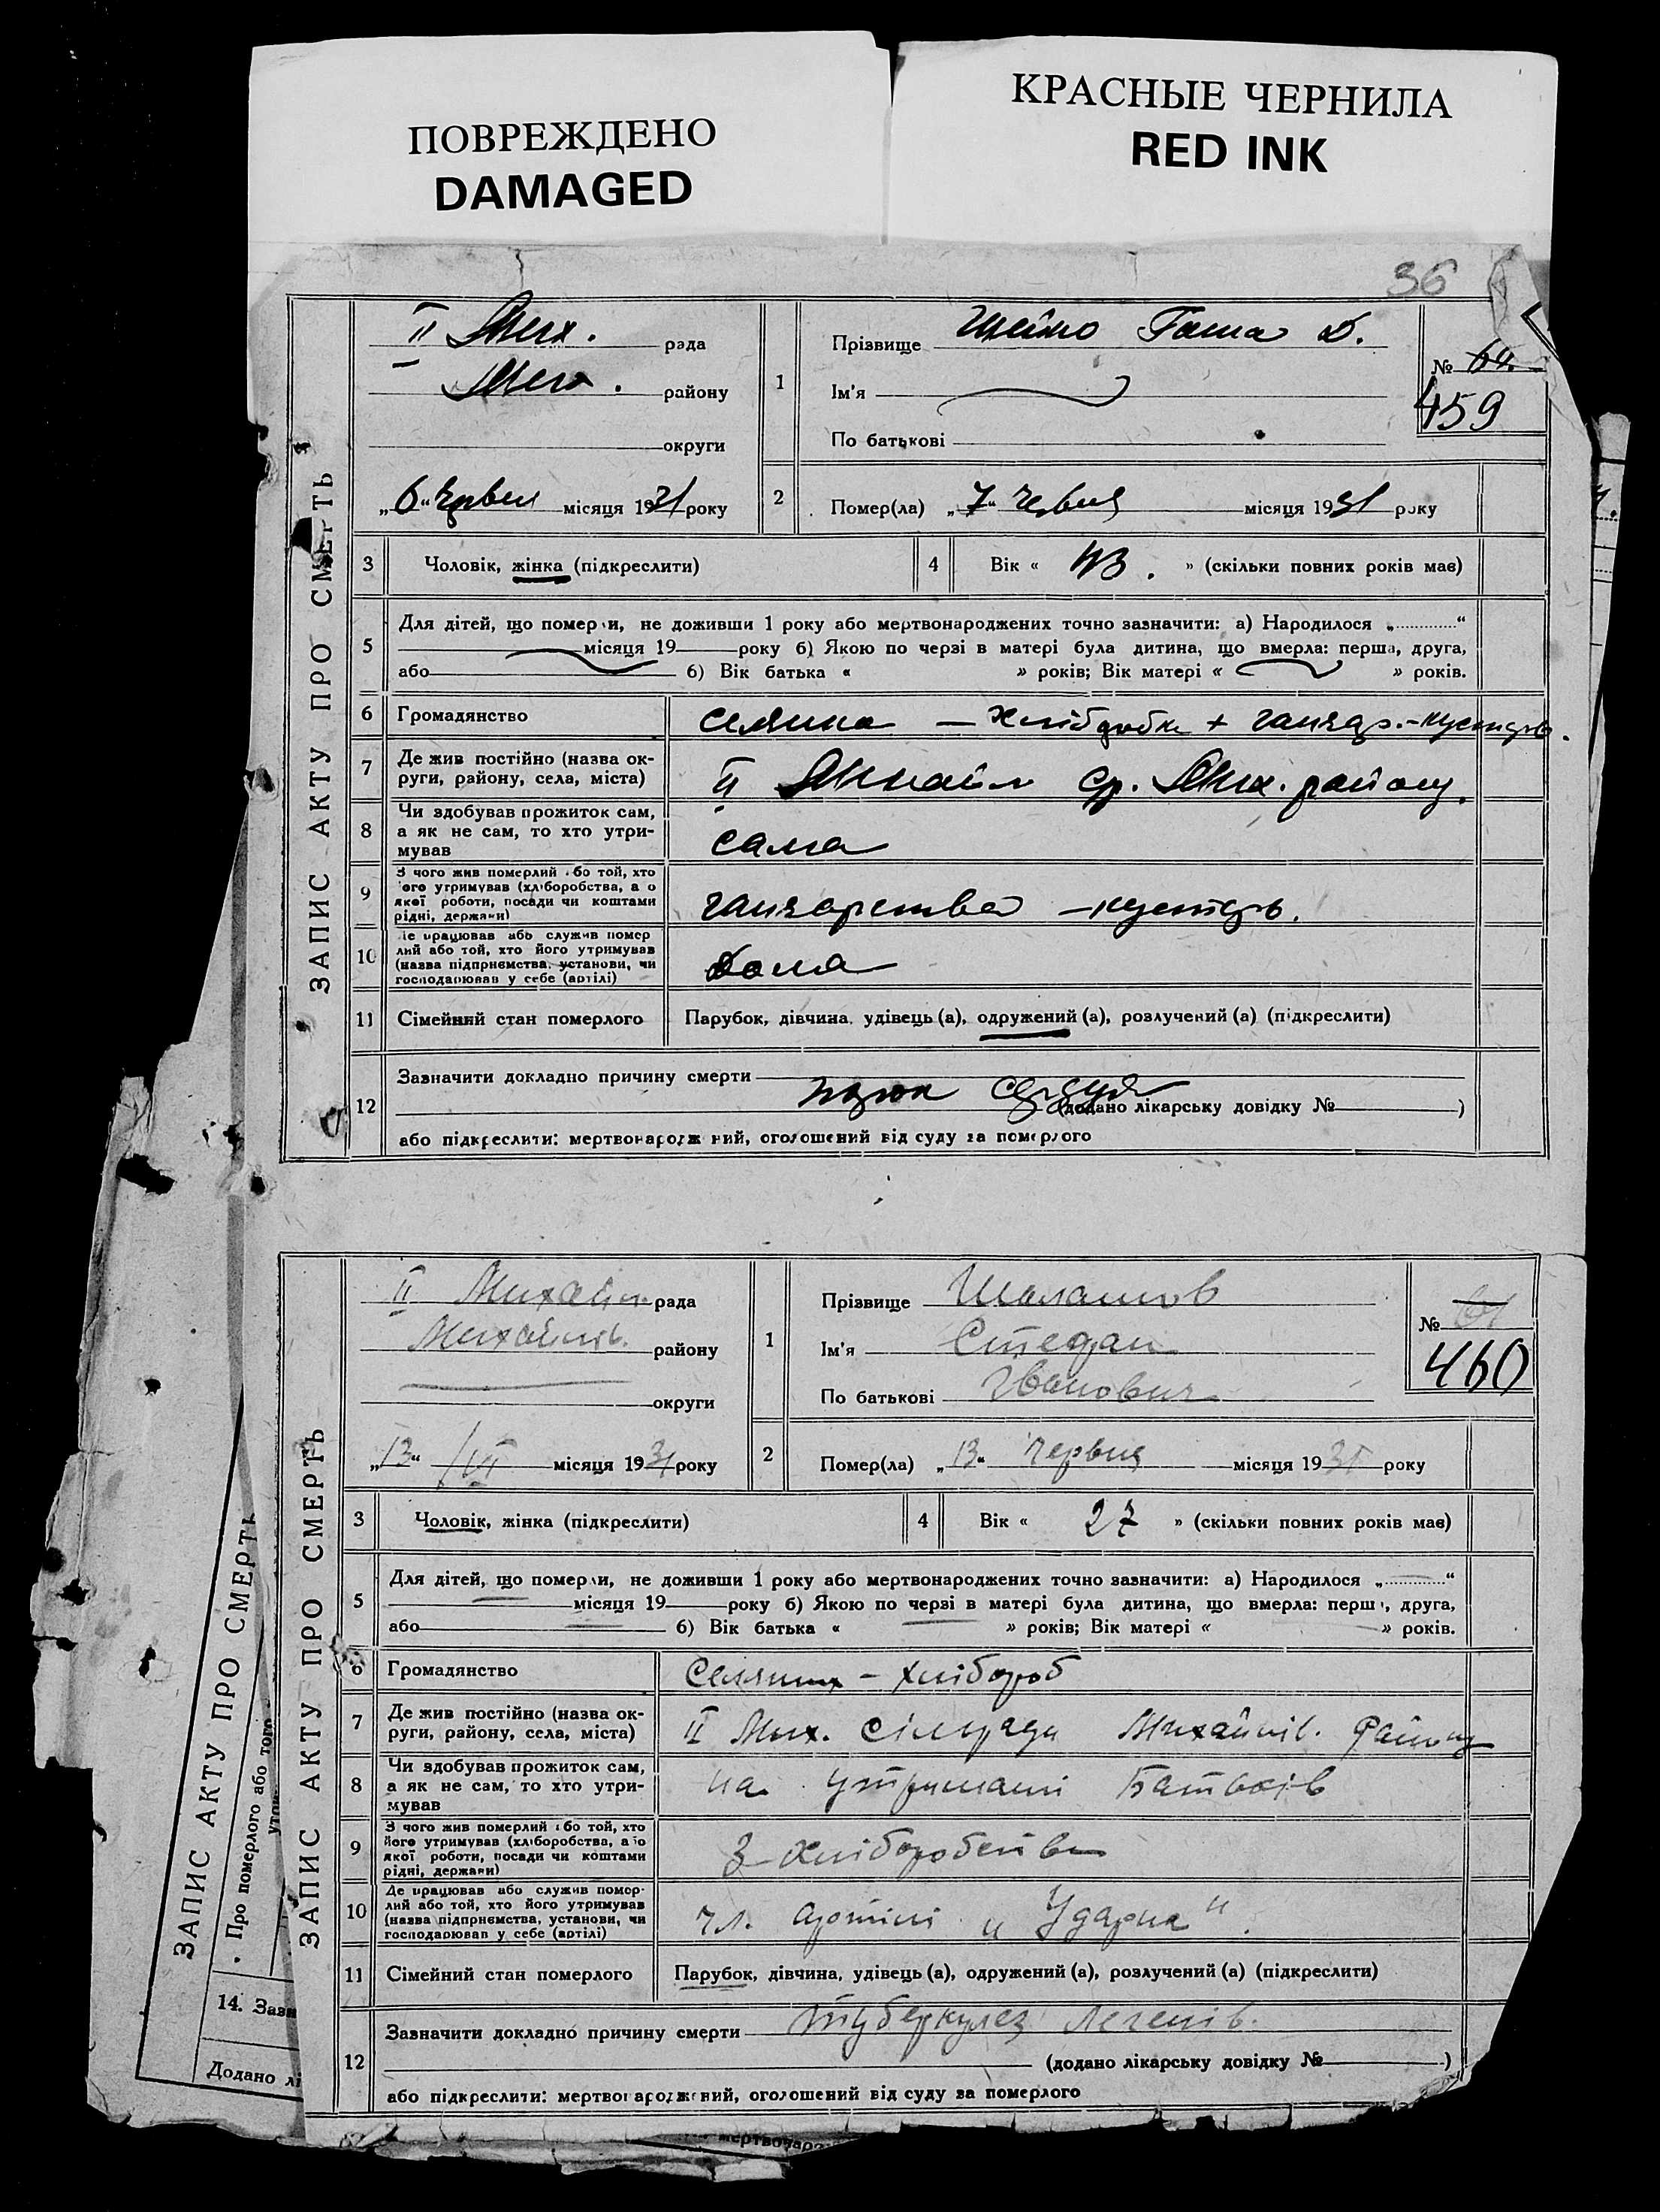 ПОВРЕЖДЕНО
DAMAGED
КРАСНЫЕ ЧЕРНИЛА
RED INK
36
ЗАПИС АКТУ ПРО СМЕРТЬ
II Мих. рада
Мих. району
округи
„6“ червня місяця 1931 року
1
Прізвище Гаша Д.
Ім'я
По батькові
№ 64
459
2
Помер(ла) „7“ червня місяця 1931 року
3
Чоловік, жінка (підкреслити)
4
Вік « 43. » (скільки повних років має)
5
Для дітей, що померли, не доживши 1 року або мертвонароджених точно зазначити: а) Народилося „............“
місяця 19 року б) Якою по черзі в матері була дитина, що вмерла: перша, друга,
або б) Вік батька « » років; Вік матері « » років.
6
Громадянство
селянка —
7
Де жив постійно (назва ок-
руги, району, села, міста)
II Михайл ср. Мих. району.
8
Чи здобував прожиток сам,
а як не сам, то хто утри-
мував
сама
9
З чого жив померлий або той, хто
його утримував (хліборобства, або
якої роботи, посади чи коштами
рідні, держави)
ганчарства - кустарь.
10
Де працював або служив помер
лий або той, хто його утримував
(назва підприємства, установи, чи
господарював у себе (артілі)
дома
11
Сімейний стан померлого
Парубок, дівчина, удівець (а), одружений (а), розлучений (а) (підкреслити)
12
Зазначити докладно причину смерти
порок сердця
(додано лікарську довідку № )
або підкреслити: мертвонароджений, оголошений від суду за померлого
ЗАПИС АКТУ ПРО СМЕРТЬ
II Михайл. рада
Михайлів. району
округи
„13“ /VI місяця 1931 року
1
Прізвище Шаламов
Ім'я Степан
По батькові Іванович
№
460
2
Помер(ла) „13“ червня місяця 1931 року
3
Чоловік, жінка (підкреслити)
4
Вік « 27 » (скільки повних років має)
5
Для дітей, що померли, не доживши 1 року або мертвонароджених точно зазначити: а) Народилося „............“
місяця 19 року б) Якою по черзі в матері була дитина, що вмерла: перша, друга,
або б) Вік батька « » років; Вік матері « » років.
6
Громадянство
Селянин - хлібороб
7
Де жив постійно (назва ок-
руги, району, села, міста)
II Мих. сільради Михайлів. району
8
Чи здобував прожиток сам,
а як не сам, то хто утри-
мував
на утриманні батьків
9
З чого жив померлий або той, хто
його утримував (хліборобства, або
якої роботи, посади чи коштами
рідні, держави)
З хліборобства
10
Де працював або служив помер-
лий або той, хто його утримував
(назва підприємства, установи, чи
господарював у себе (артілі)
чл. артілі „Ударна“.
11
Сімейний стан померлого
Парубок, дівчина, удівець (а), одружений (а), розлучений (а) (підкреслити)
12
Зазначити докладно причину смерти туберкулез легенів.
(додано лікарську довідку № )
або підкреслити: мертвонароджений, оголошений від суду за померлого
ЗАПИС АКТУ ПРО СМЕРТЬ
Про померлого або того
14. Зазн
Додано лі
мертвонаро